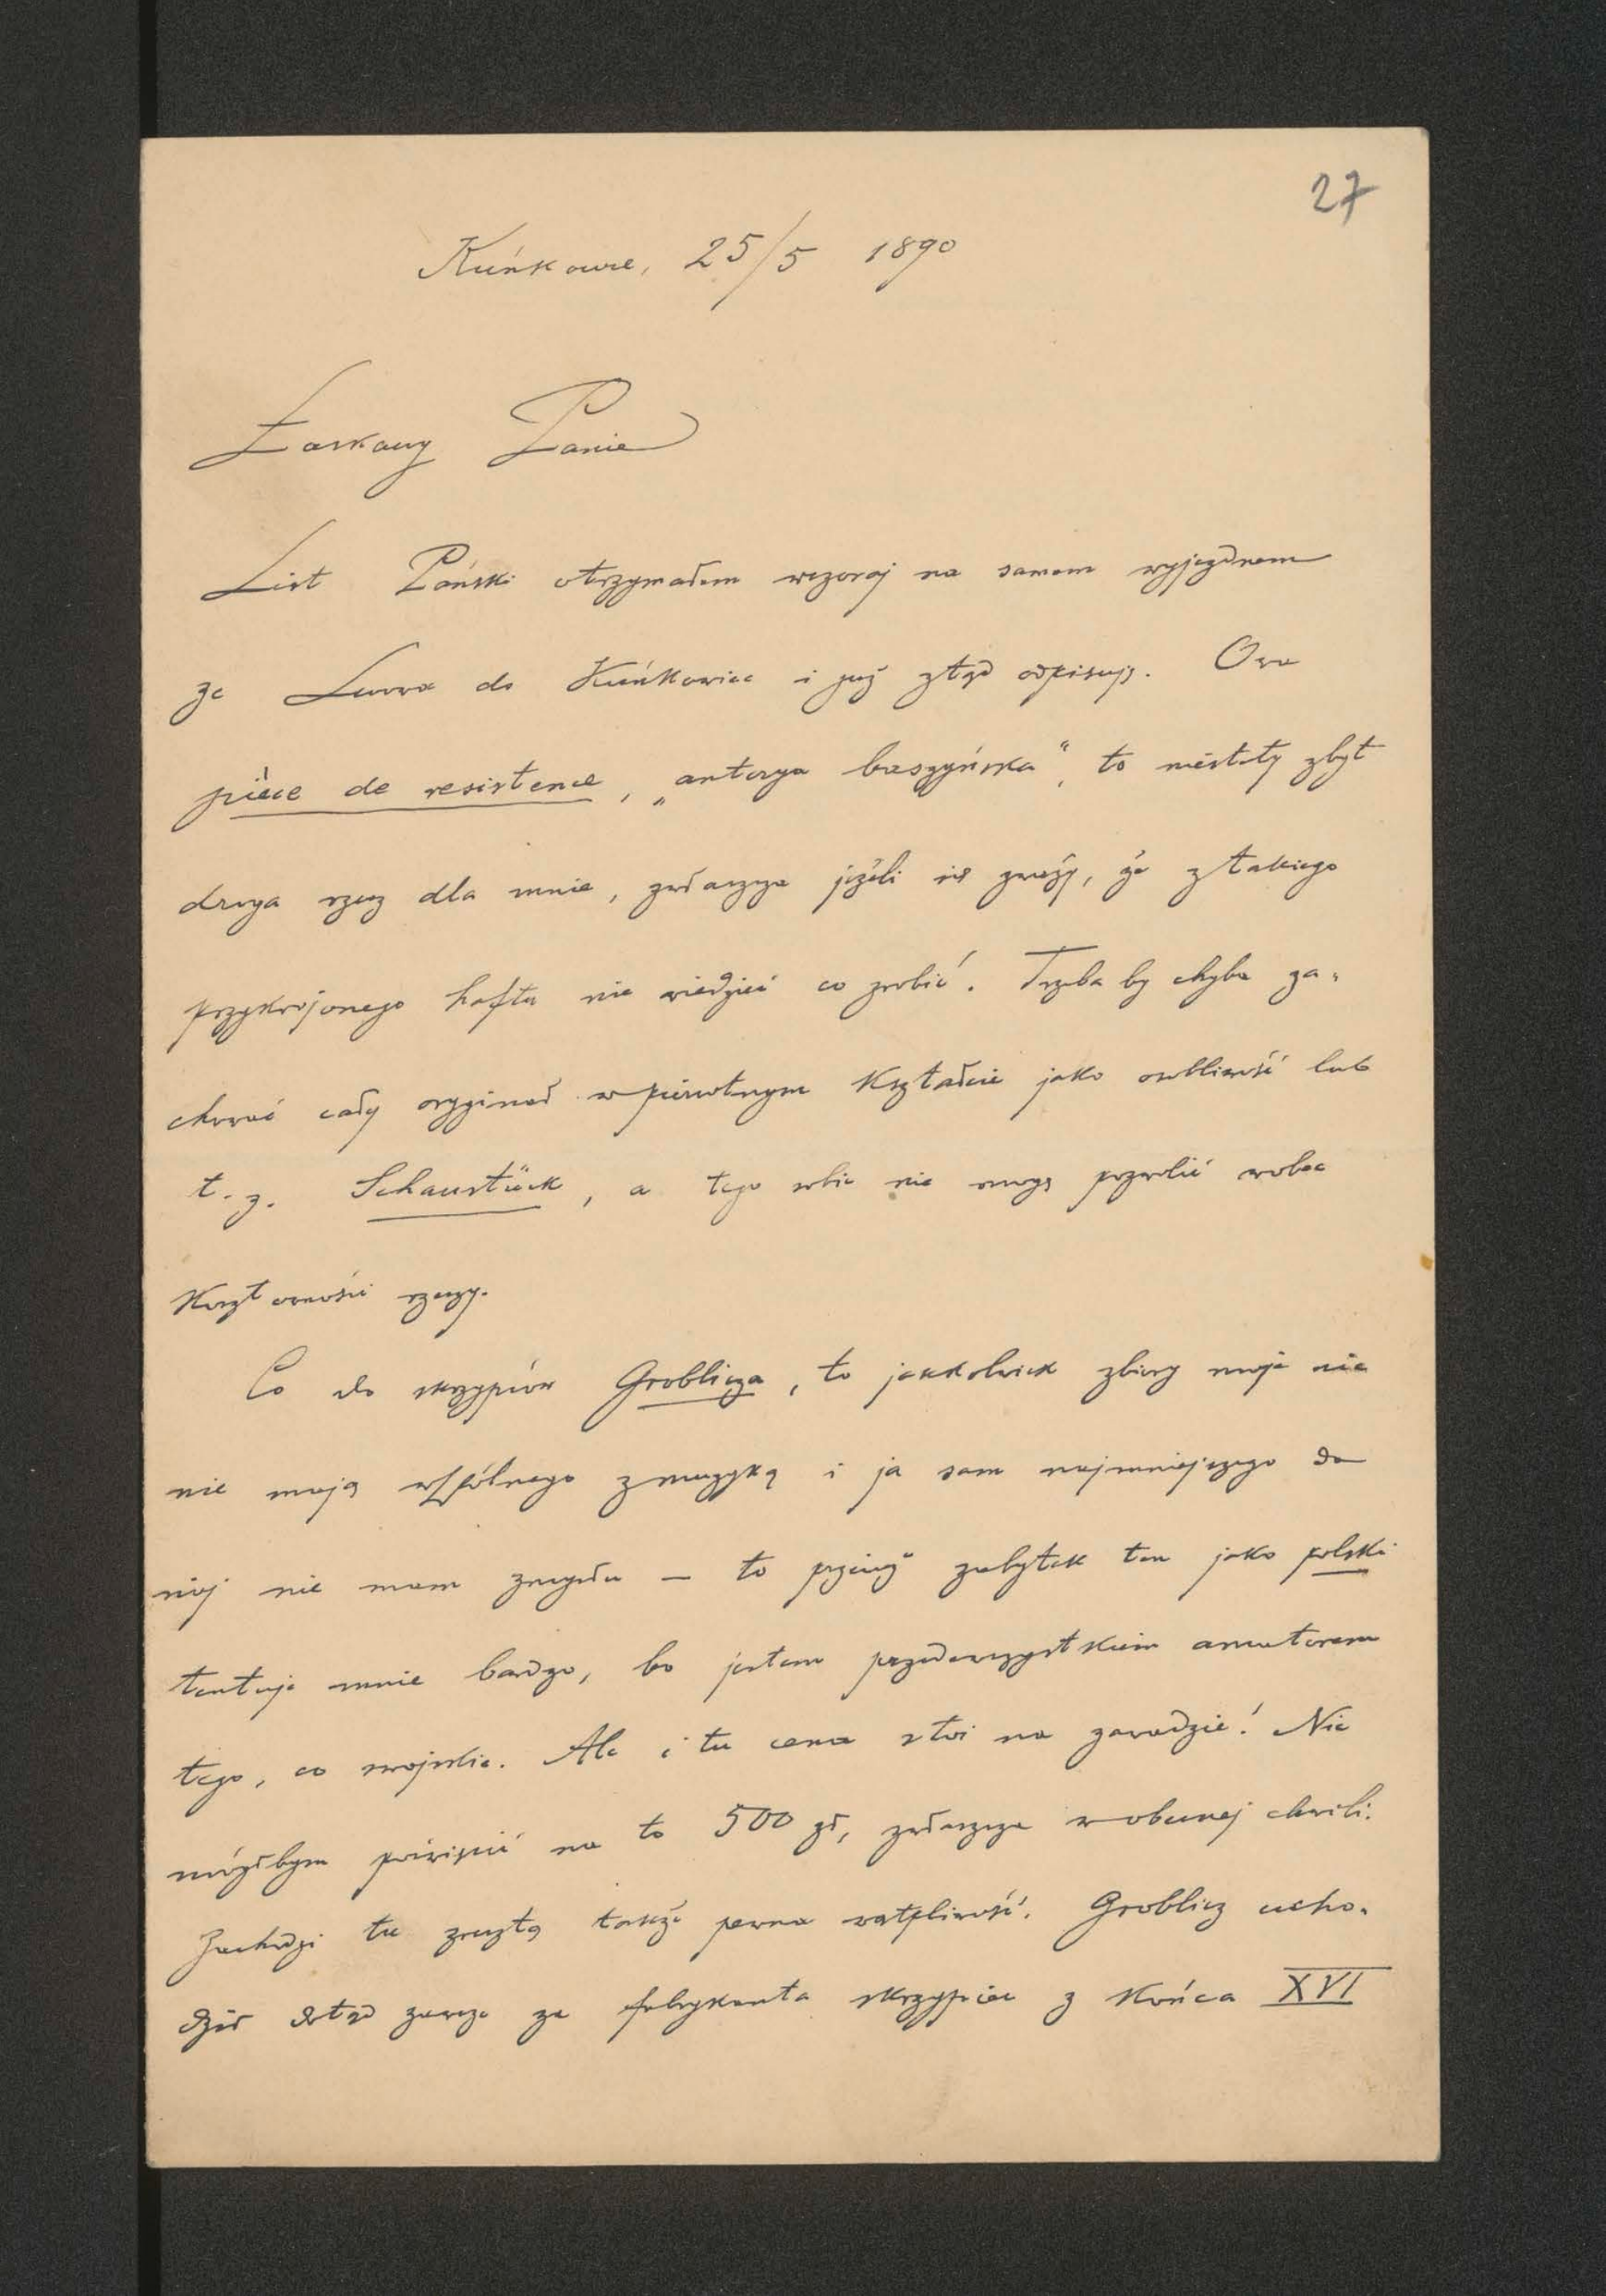 27
Kuńkowce, 25/5 1890
Łaskawy Panie
List Pański otrzymałem wczoraj na samem wyjezdnem
ze Lwowa do Kuńkowiec i już ztąd odpisuję. Owa
pièce de resistence, „ antesga buszyńska“, to niestety zbyt
droga rzecz dla mnie, zwłaszcza jeżeli się zważy, że z takiego
przykrojonego haftu nie wiedzieć co zrobić. Trzeba by chyba za-
chować cały oryginał w pierwotnym kształcie jako osobliwość lub
t. z. Schaustück, a tego sobie nie mogę pozwolić wobec
kosztowności rzeczy.
Co do skrzypiów Groblicza, to jakkolwiek zbiory moje nic
nie mają wspólnego z muzyką i ja sam najmniejszego do
niej nie mam zmysłu — to przecież zabytek ten jako polski
tentuje mnie bardzo, bo jestem przedewszystkiem amatorem
tego, co swojskie. Ale i tu cena stoi na zawadzie! Nie
mógłbym poświęcić na to 500 zł, zwłaszcza w obecnej chwili.
Zachodzi tu zresztą także pewna wątpliwość. Groblicz ucho-
dził dotąd zawsze za fabrykanta skrzypiec z końca XVI